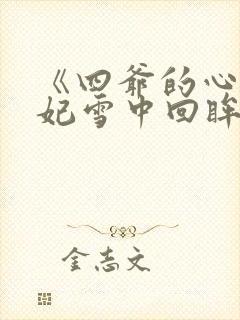 《四爷的心
妃雪中回眸
金志文